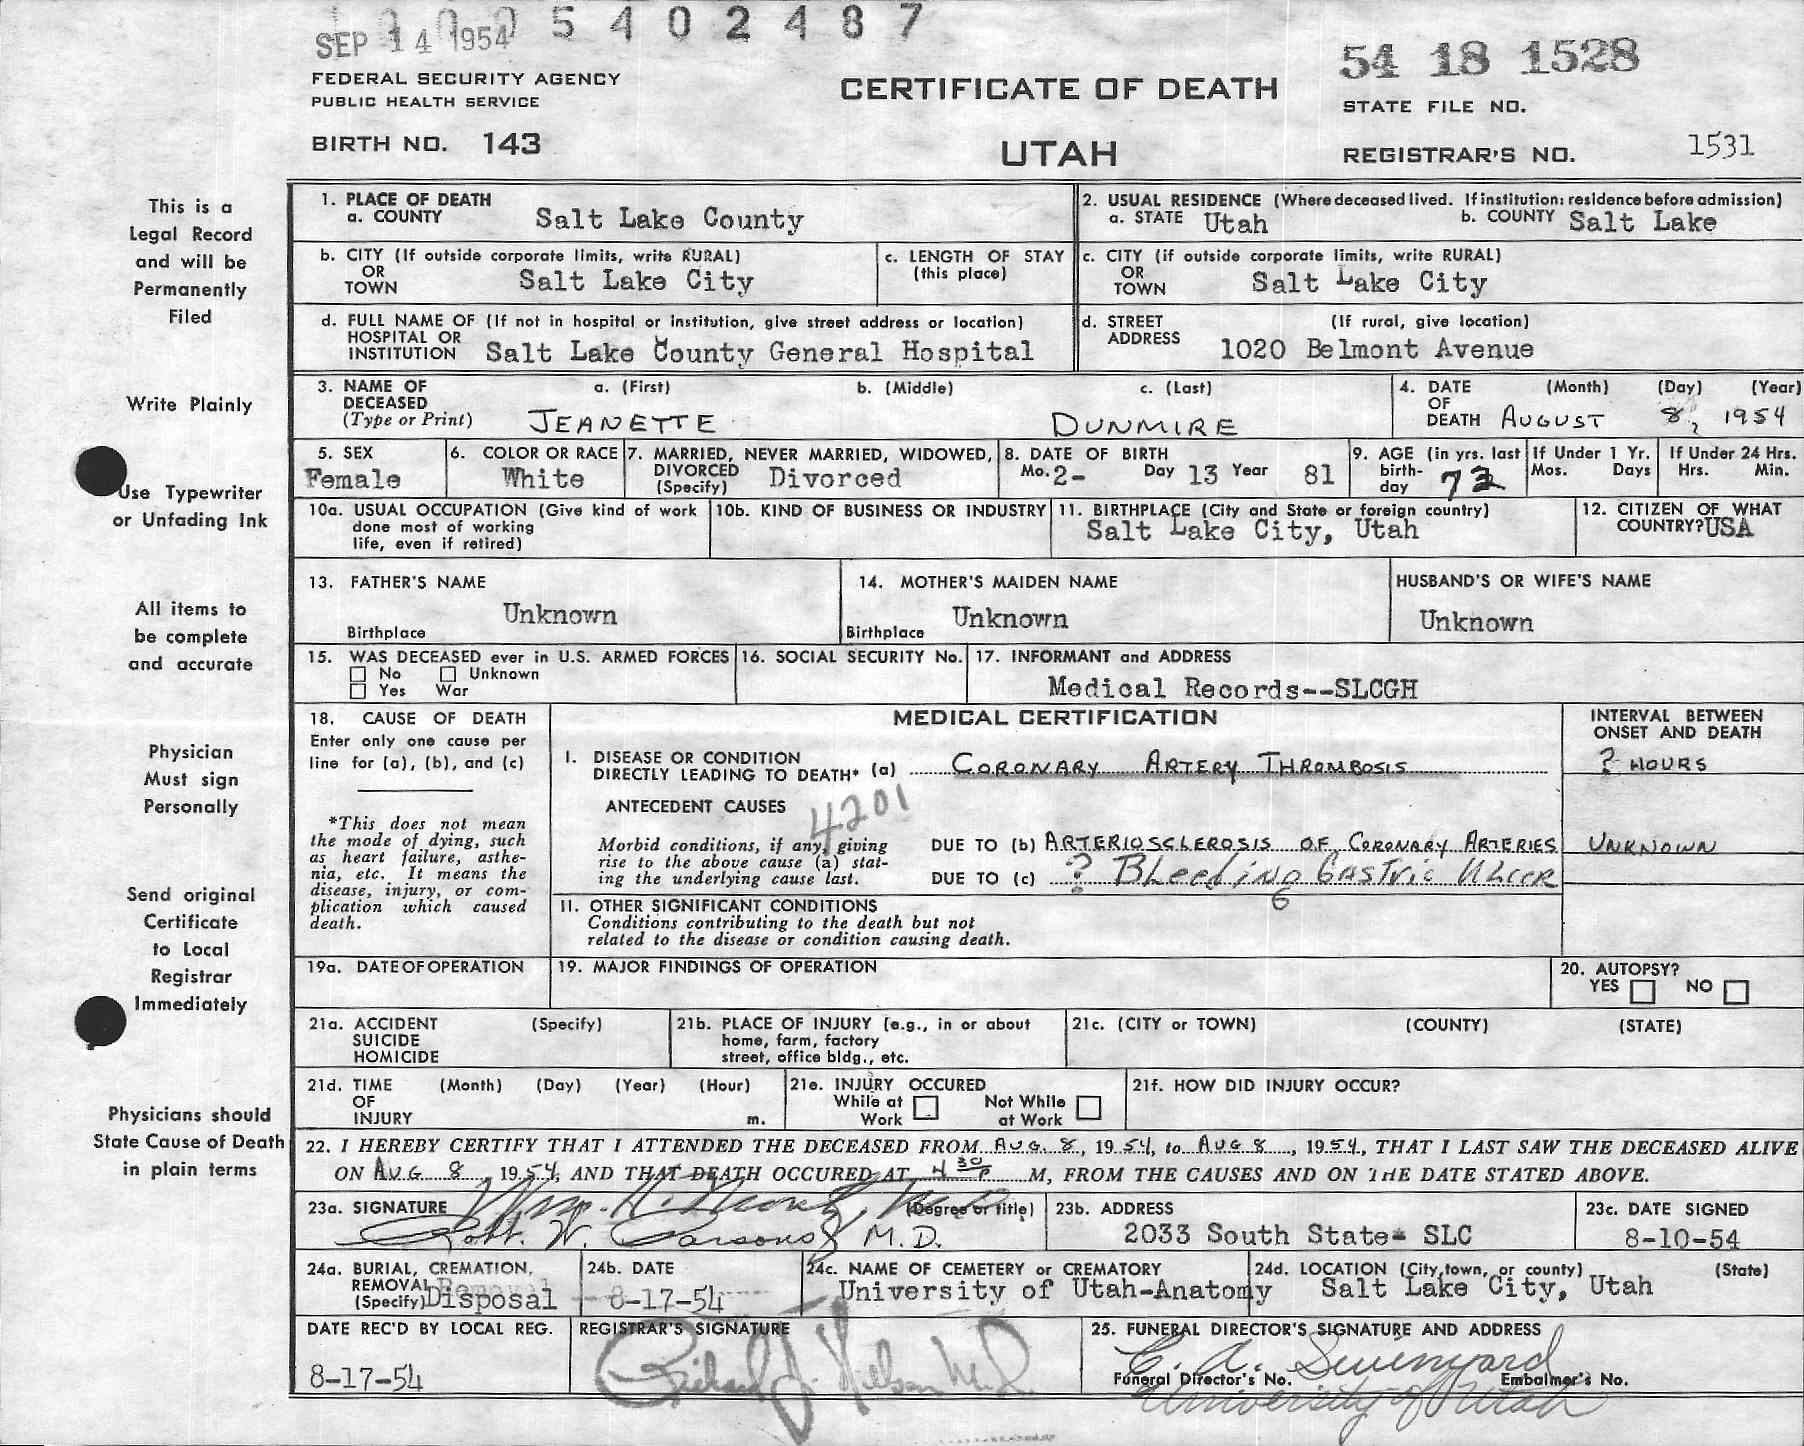 SEP 14 1954 5 4 0 2 4 8 7
54 18 1528
FEDERAL SECURITY AGENCY
PUBLIC HEALTH SERVICE
CERTIFICATE OF DEATH
STATE FILE NO.
BIRTH NO. 143
UTAH
REGISTRAR'S NO. 1531
This is a
Legal Record
and will be
Permanently
Filed
Write Plainly
Use Typewriter
or Unfading Ink
All items to
be complete
and accurate
Physician
Must sign
Personally
Send original
Certificate
to Local
Registrar
Immediately
Physicians should
State Cause of Death
in plain terms
1. PLACE OF DEATH
a. COUNTY Salt Lake County
2. USUAL RESIDENCE (Where deceased lived. If institution: residence before admission)
a. STATE Utah b. COUNTY Salt Lake
b. CITY (If outside corporate limits, write RURAL)
OR
TOWN Salt Lake City
c. LENGTH OF STAY
(this place)
c. CITY (if outside corporate limits, write RURAL)
OR
TOWN Salt Lake City
d. FULL NAME OF (If not in hospital or institution, give street address or location)
HOSPITAL OR
INSTITUTION Salt Lake County General Hospital
d. STREET (If rural, give location)
ADDRESS 1020 Belmont Avenue
3. NAME OF a. (First) b. (Middle) c. (Last)
DECEASED
(Type or Print) JEANETTE DUNMIRE
4. DATE (Month) (Day) (Year)
OF
DEATH AUGUST 8, 1954
5. SEX
Female
6. COLOR OR RACE
White
7. MARRIED, NEVER MARRIED, WIDOWED,
DIVORCED
(Specify) Divorced
8. DATE OF BIRTH
Mo. 2- Day 13 Year 81
9. AGE (in yrs. last
birth-
day 73
If Under 1 Yr.
Mos. Days
If Under 24 Hrs.
Hrs. Min.
10a. USUAL OCCUPATION (Give kind of work
done most of working
life, even if retired)
10b. KIND OF BUSINESS OR INDUSTRY
11. BIRTHPLACE (City and State or foreign country)
Salt Lake City, Utah
12. CITIZEN OF WHAT
COUNTRY? USA
13. FATHER'S NAME
Unknown
Birthplace
14. MOTHER'S MAIDEN NAME
Unknown
Birthplace
HUSBAND'S OR WIFE'S NAME
Unknown
15. WAS DECEASED ever in U.S. ARMED FORCES
No Unknown
Yes War
16. SOCIAL SECURITY No.
17. INFORMANT and ADDRESS
Medical Records--SLCGH
18. CAUSE OF DEATH
Enter only one cause per
line for (a), (b), and (c)
*This does not mean
the mode of dying, such
as heart failure, asthe-
nia, etc. It means the
disease, injury, or com-
plication which caused
death.
MEDICAL CERTIFICATION
INTERVAL BETWEEN
ONSET AND DEATH
I. DISEASE OR CONDITION
DIRECTLY LEADING TO DEATH* (a) CORONARY ARTERY THROMBOSIS ? HOURS
ANTECEDENT CAUSES 4201
Morbid conditions, if any, giving
rise to the above cause (a) stat-
ing the underlying cause last.
DUE TO (b) ARTERIOSCLEROSIS OF CORONARY ARTERIES UNKNOWN
DUE TO (c) ? Bleeding Gastric Ulcer
6
II. OTHER SIGNIFICANT CONDITIONS
Conditions contributing to the death but not
related to the disease or condition causing death.
19a. DATE OF OPERATION
19. MAJOR FINDINGS OF OPERATION
20. AUTOPSY?
YES NO
21a. ACCIDENT (Specify)
SUICIDE
HOMICIDE
21b. PLACE OF INJURY (e.g., in or about
home, farm, factory
street, office bldg., etc.
21c. (CITY or TOWN) (COUNTY) (STATE)
21d. TIME (Month) (Day) (Year) (Hour)
OF
INJURY m.
21e. INJURY OCCURED
While at Not While
Work at Work
21f. HOW DID INJURY OCCUR?
22. I HEREBY CERTIFY THAT I ATTENDED THE DECEASED FROM AUG. 8, 1954, to AUG 8, 1954, THAT I LAST SAW THE DECEASED ALIVE
ON AUG 8, 1954, AND THAT DEATH OCCURED AT 4 30 P M, FROM THE CAUSES AND ON THE DATE STATED ABOVE.
23a. SIGNATURE (Degree or title)
Robt. W. Parsons M.D.
23b. ADDRESS
2033 South State- SLC
23c. DATE SIGNED
8-10-54
24a. BURIAL, CREMATION,
REMOVAL Removal
(Specify) Disposal
24b. DATE
8-17-54
24c. NAME OF CEMETERY or CREMATORY
University of Utah-Anatomy
24d. LOCATION (City, town, or county) (State)
Salt Lake City, Utah
DATE REC'D BY LOCAL REG.
8-17-54
REGISTRAR'S SIGNATURE
Richard J. Nelson M.D.
25. FUNERAL DIRECTOR'S SIGNATURE AND ADDRESS
C. A.
Funeral Director's No. Embalmer's No.
University of Utah